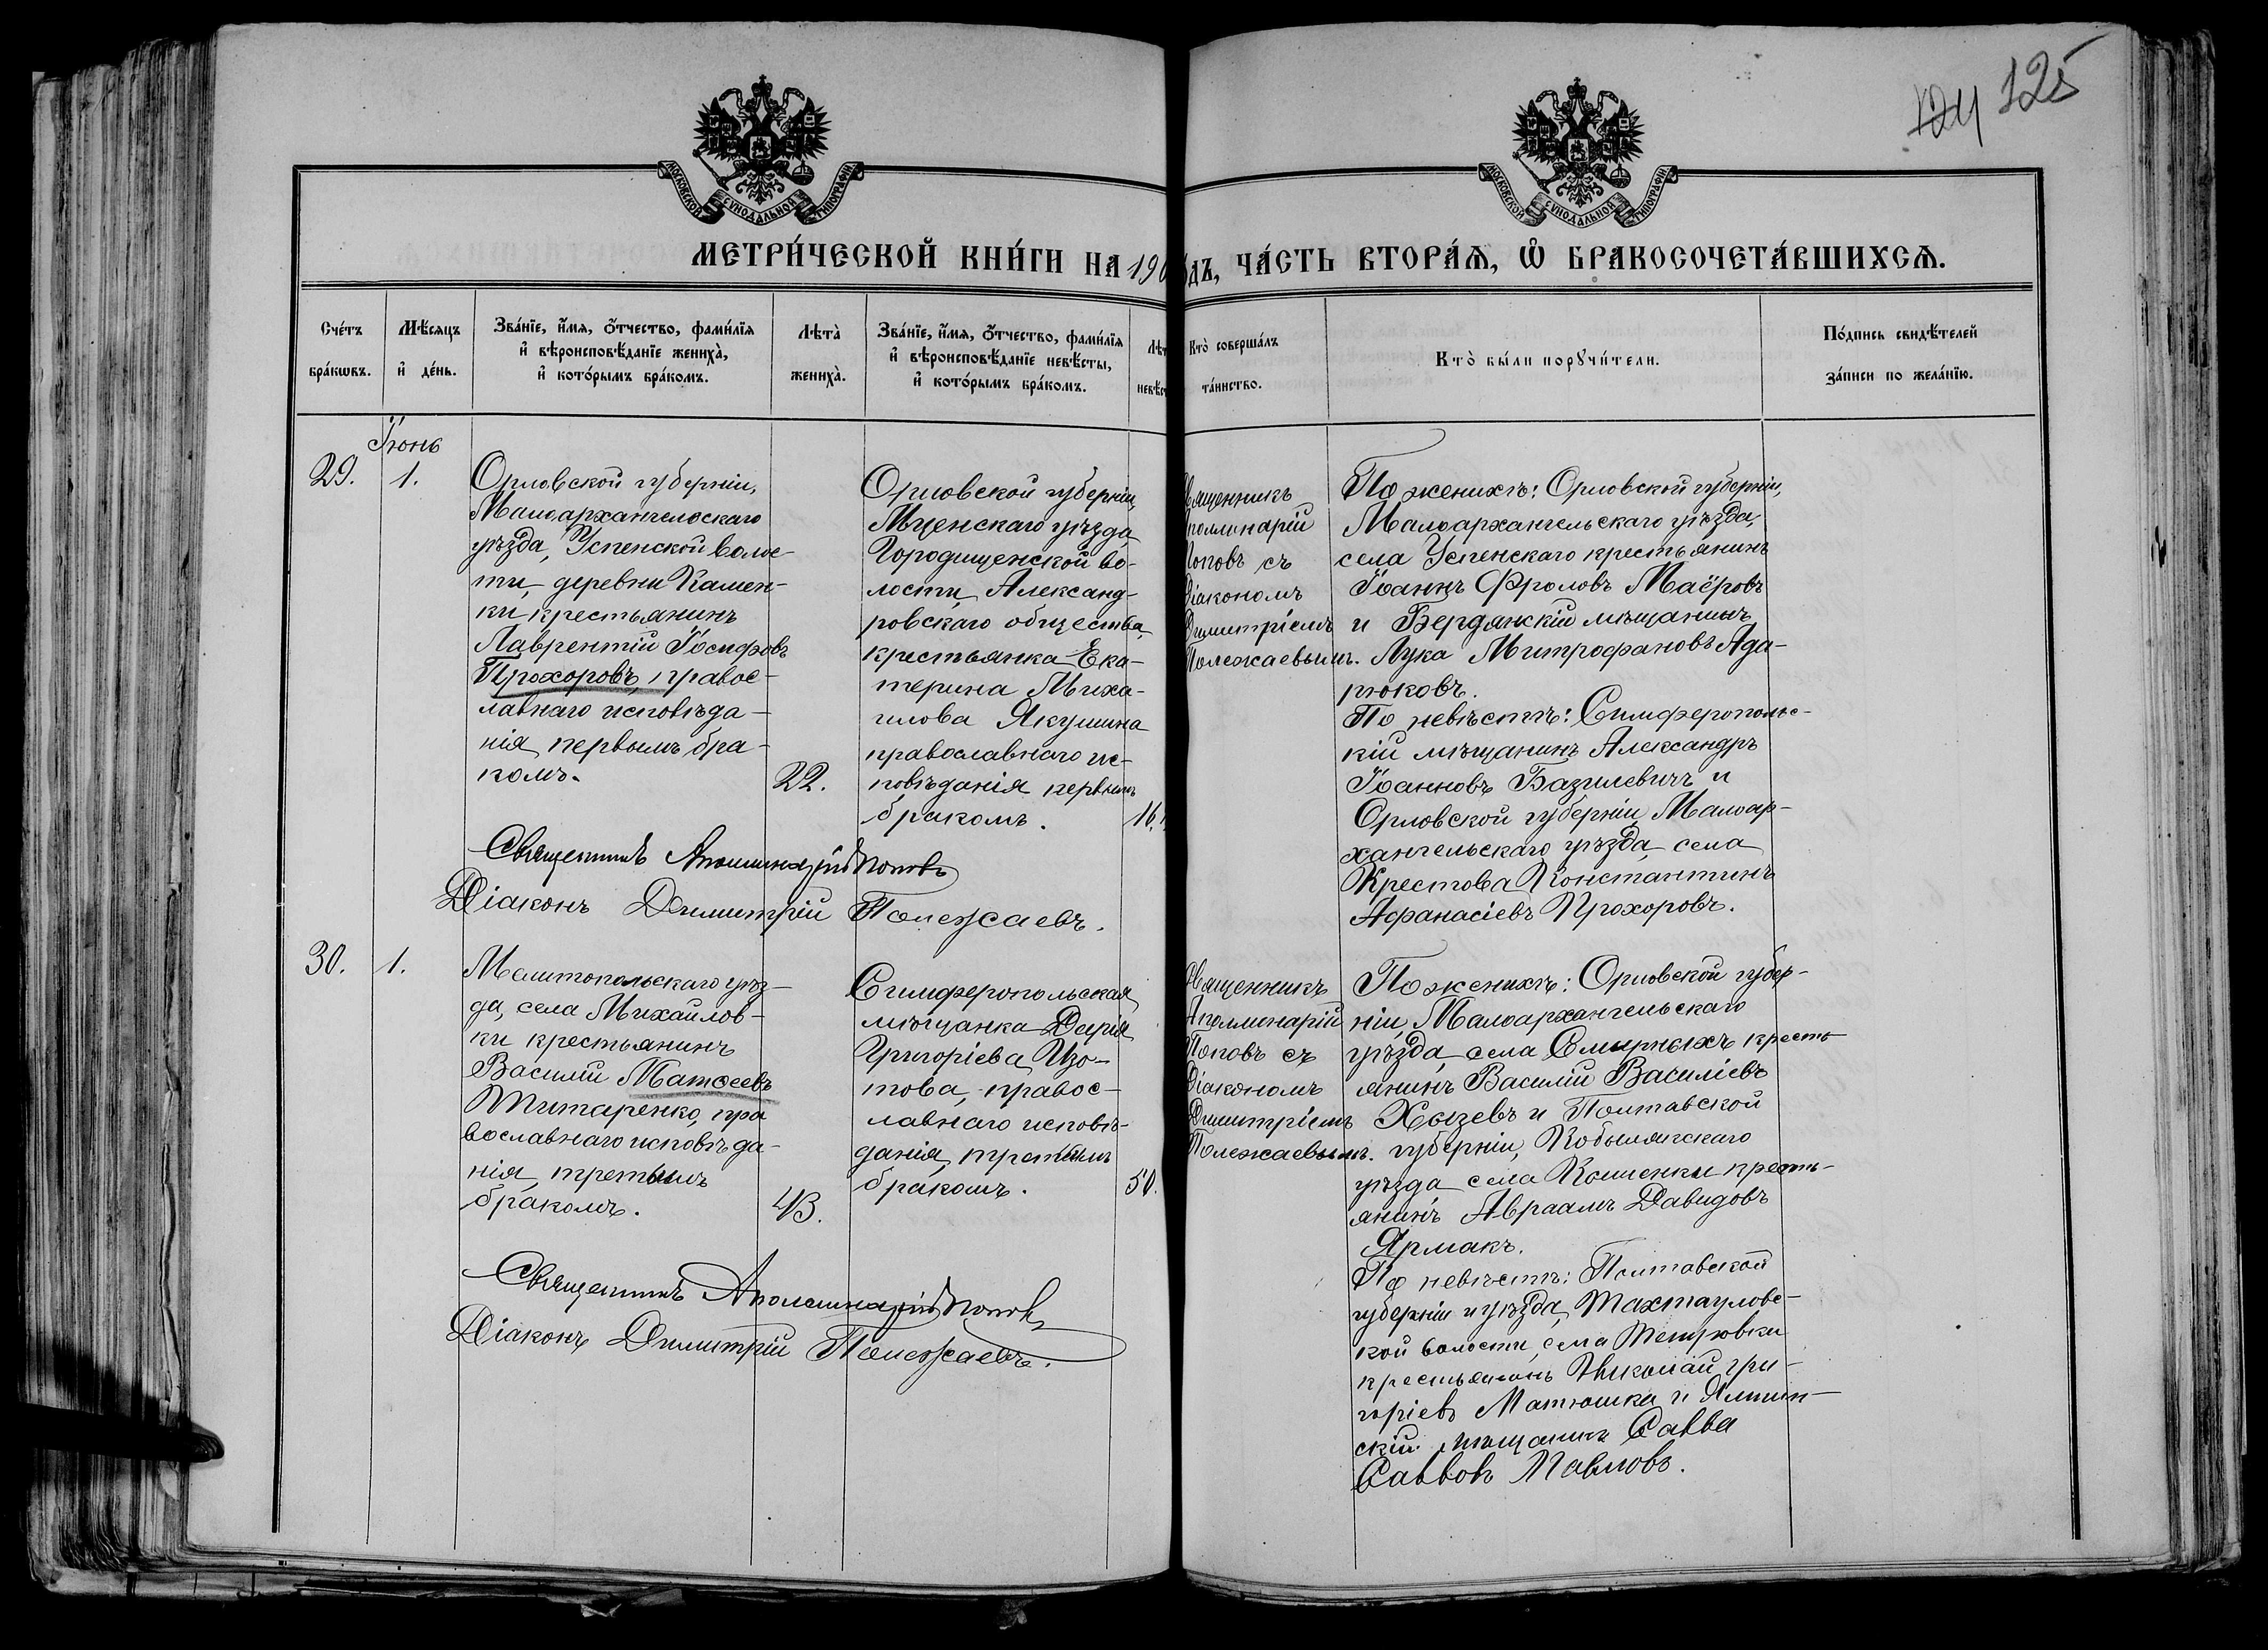 124 125
МОСКОВСКОЙ СѴНОДАЛЬНОЙ ТИПОГРАФІИ
МОСКОВСКОЙ СѴНОДАЛЬНОЙ ТИПОГРАФІИ
МЕТРИ́ЧЕСКОЙ КНИ́ГИ НА 190
дъ, ЧА́СТЬ ВТОРА́Ѧ, Ѽ БРАКОСОЧЕТА́ВШИХСѦ.
Сче́тъ
бра́кѡвъ.
Мѣ́сяцъ
и҆ де́нь.
Зва́нїе, и҆́мя, ѻ҆́тчество, фами́лїя
и҆ вѣроисповѣ́данїе женихà,
и҆ кото́рымъ бра́комъ.
Лѣтà
женихà.
Зва́нїе, и҆́мя, ѻ҆́тчество, фами́лїя
и҆ вѣроисповѣ́данїе невѣ́сты,
и҆ кото́рымъ бра́комъ.
Лѣт
невѣ́ст
Ктò соверша́лъ
та́инство.
Ктò бы́ли порꙋчи́тели.
По́дпись свидѣ́телей
за́писи по жела́нїю.
Іюнь
29.
1.
Орловской губерніи,
Малоархангельскаго
уѣзда, Успенской волос-
ти, деревни Камен-
ки крестьянинъ
Лаврентій Іосифовъ
Прохоровъ, правос-
лавнаго исповѣда-
нія, первымъ бра-
комъ.
22.
Орловской губерніи,
Мценскаго уѣзда
Городищенской во-
лости, Александ-
ровскаго общества,
крестьянка Ека-
терина Миха-
илова Якушина
православнаго ис-
повѣданія первымъ
бракомъ.
16.
Священникъ Аполлинарій Поповъ
Діаконъ Димитрій Полежаевъ.
вященникъ
поллинарій
Поповъ съ
Діакономъ
Димитріемъ
Полежаевымъ.
По женихѣ: Орловской губерніи,
Малоархангельскаго уѣзда,
села Успенскаго крестьянинъ
Іоаннъ Фроловъ Маёровъ
и Бердянскій мѣщанинъ
Лука Митрофановъ Ада-
рюковъ.
По невѣстѣ: Симферопольс-
кій мѣщанинъ Александръ
Іоанновъ Базилевичъ и
Орловской губерніи, Малоар-
хангельскаго уѣзда села
Крестова Константинъ
Афанасіевъ Прохоровъ.
30.
1.
Мелитопольскаго уѣз-
да, села Михайлов-
ки крестьянинъ
Василій Матѳеевъ
Титаренко, пра
вославнаго исповѣда-
нія, третьимъ
бракомъ.
43.
Симферопольская
мѣщанка Дарія
Григоріева Изо-
това, правос-
лавнаго исповѣ-
данія, третьимъ
бракомъ.
50.
Священникъ Аполлинарій Поповъ
Діаконъ Димитрій Полежаевъ.
Священникъ
Аполлинарій
Поповъ съ
Діакономъ
Димитріемъ
Полежаевымъ.
По женихѣ: Орловской губер-
ніи, Малоархангельскаго
уѣзда, села Смирныхъ кресть
янинъ Василій Василіевъ
Хызевъ и Полтавской
губерніи, Кобылякскаго
уѣзда села Кишенки кресть-
янинъ Авраамъ Давидовъ
Ярмакъ.
По невѣстѣ: Полтавской
губерніи и уѣзда, Тахтауловс-
кой волости, села
крестьянинъ Николай Гри-
горіевъ Матюшка и
скій мѣщанинъ Савва
Саввовъ Павловъ.